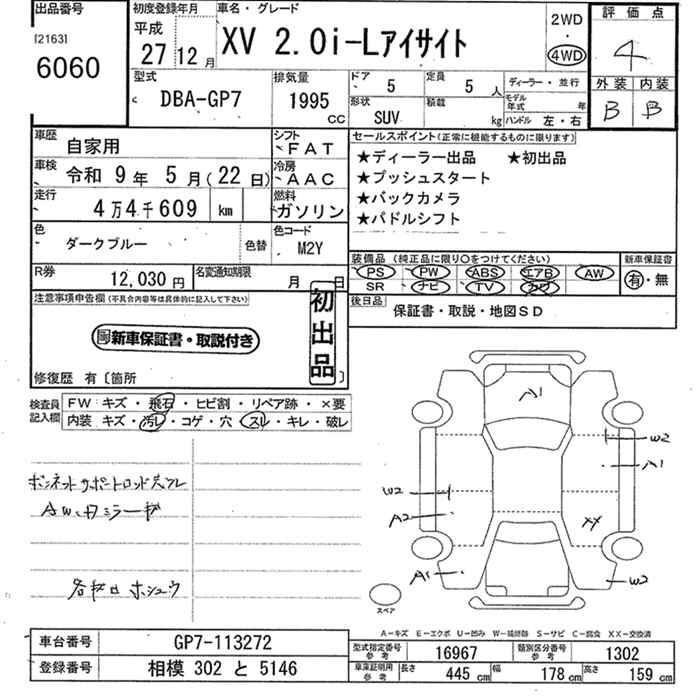 出品番号
[2163]
6060
初度登録年月
平成
27 12 月
車名・グレード
XV 2.0i-Lアイサイト
2WD
・
4WD
評価点
4
外装 内装
B B
型式
DBA-GP7
排気量
1995
CC
ドア 5
定員 5 人
形状 SUV
積載 kg
ディーラー・並行
モデル年式 年
ハンドル 左・右
車歴 自家用
シフト FAT
車検 令和 9年 5月(22日)
冷房 AAC
走行 4万4千609 km
燃料 ガソリン
色 ダークブルー 色替
色コード M2Y
R券 12,030円
名変通知期限 月 日
セールスポイント(正常に機能するものに限ります)
★ディーラー出品 ★初出品
★プッシュスタート
★バックカメラ
★パドルシフト
装備品(純正品に限り○をつけてください) 新車保証書
PS PW ABS エアB AW 有・無
SR ナビ TV カワ
後日品 保証書・取説・地図SD
注意事項申告欄(不具合内容等は具体的に記入して下さい)
初出品
新車保証書・取説付き
修復歴 有〔箇所 〕
検査員記入欄
FW キズ・飛石・ヒビ割・リペア跡・×要
内装 キズ・汚レ・コゲ・穴・スレ・キレ・破レ
ボンネットサポートロッド欠品
AW、ガミラーキ
各所ホシュウ
A1
W2
A1
W2
A2
XX
A1
W2
スペア
A-キズ E-エクボ U-凹み W-補修跡 S-サビ C-腐食 XX-交換済
車台番号 GP7-113272
登録番号 相模 302 と 5146
型式指定番号 参考 16967
類別区分番号 参考 1302
車庫証明用 参考 長さ 445 cm 幅 178 cm 高さ 159 cm